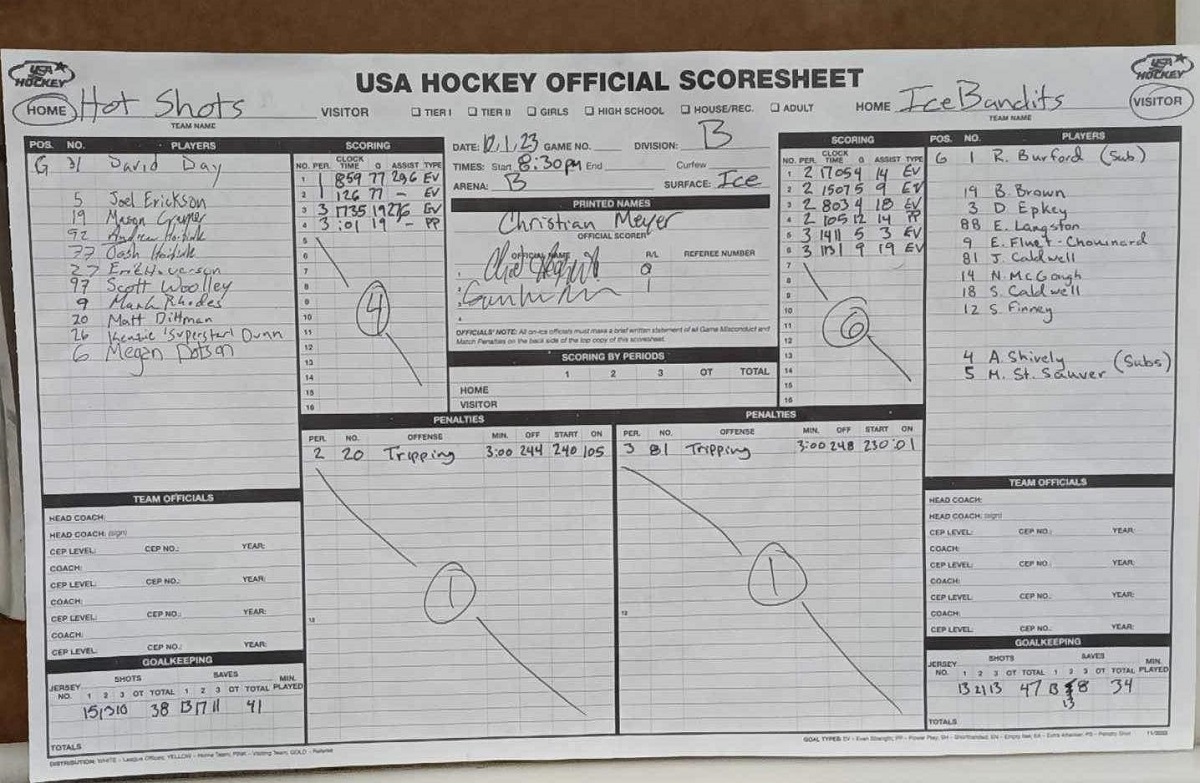 USA HOCKEY
USA HOCKEY OFFICIAL SCORESHEET
USA HOCKEY
HOME Hot Shots VISITOR
TEAM NAME
❑ TIER I ❑ TIER II ❑ GIRLS ❑ HIGH SCHOOL ❑ HOUSE/REC. ❑ ADULT
HOME Ice Bandits VISITOR
TEAM NAME
POS. NO. PLAYERS
G 31 David Day
5 Joel Erickson
19 Mason
92
77 Dash
27
97 Scott Woolley
9 Mark Rhodes
20 Matt Dittman
26 Kenzie 'Superstar' Dunn
6 Megan Dotson
SCORING
NO. PER. CLOCK TIME G ASSIST TYPE
1 1 859 77 296 EV
2 1 126 77 - EV
3 3 1735 19 EV
4 3 :01 19 - PP
5
6
7
8
9
10
11
12
13
14
15
16
4
DATE: 12,1,23 GAME NO. DIVISION: B
TIMES: Start 8:30pm End Curfew
ARENA: B SURFACE: Ice
PRINTED NAMES
Christian Meyer
OFFICIAL SCORER
OFFICIAL NAME R/L REFEREE NUMBER
1
2
3
4
OFFICIALS' NOTE: All on-ice officials must make a brief written statement of all Game Misconduct and
Match Penalties on the back side of the top copy of this scoresheet.
SCORING BY PERIODS
1 2 3 OT TOTAL
HOME
VISITOR
SCORING
NO. PER. CLOCK TIME G ASSIST TYPE
1 2 1705 4 14 EV
2 2 1507 5 9 EV
3 2 803 4 18 EV
4 2 105 12 14 PP
5 3 1411 5 3 EV
6 3 1131 9 19 EV
7
8
9
10
11
12
13
14
15
16
6
POS. NO. PLAYERS
G 1 R. Burford (Sub)
19 B. Brown
3 D Epkey
88 E. Langston
9 E. Fluet-Chouinard
81 J. Caldwell
14 N. McGough
18 S. Caldwell
12 S. Finney
4 A. Shively (Subs)
5 M. St. Sauver
PENALTIES
PER. NO. OFFENSE MIN. OFF START ON
2 20 Tripping 3:00 244 240 105
12
1
PENALTIES
PER. NO. OFFENSE MIN. OFF START ON
3 81 Tripping 3:00 248 230 :01
12
1
TEAM OFFICIALS
HEAD COACH:
HEAD COACH: (sign)
CEP LEVEL: CEP NO.: YEAR:
COACH:
CEP LEVEL: CEP NO.: YEAR:
COACH:
CEP LEVEL: CEP NO.: YEAR:
COACH:
CEP LEVEL: CEP NO.: YEAR:
GOALKEEPING
JERSEY NO. SHOTS 1 2 3 OT TOTAL SAVES 1 2 3 OT TOTAL MIN. PLAYED
15 13 10 38 13 17 11 41
TOTALS
TEAM OFFICIALS
HEAD COACH:
HEAD COACH: (sign)
CEP LEVEL: CEP NO.: YEAR:
COACH:
CEP LEVEL: CEP NO.: YEAR:
COACH:
CEP LEVEL: CEP NO.: YEAR:
COACH:
CEP LEVEL: CEP NO.: YEAR:
GOALKEEPING
JERSEY NO. SHOTS 1 2 3 OT TOTAL SAVES 1 2 3 OT TOTAL MIN. PLAYED
13 21 13 47 13 8 34
13
TOTALS
DISTRIBUTION: WHITE - League Officer, YELLOW - Home Team, PINK - Visiting Team, GOLD - Referee
GOAL TYPES: EV - Even Strength, PP - Power Play, SH - Shorthanded, EN - Empty Net, EA - Extra Attacker, PS - Penalty Shot